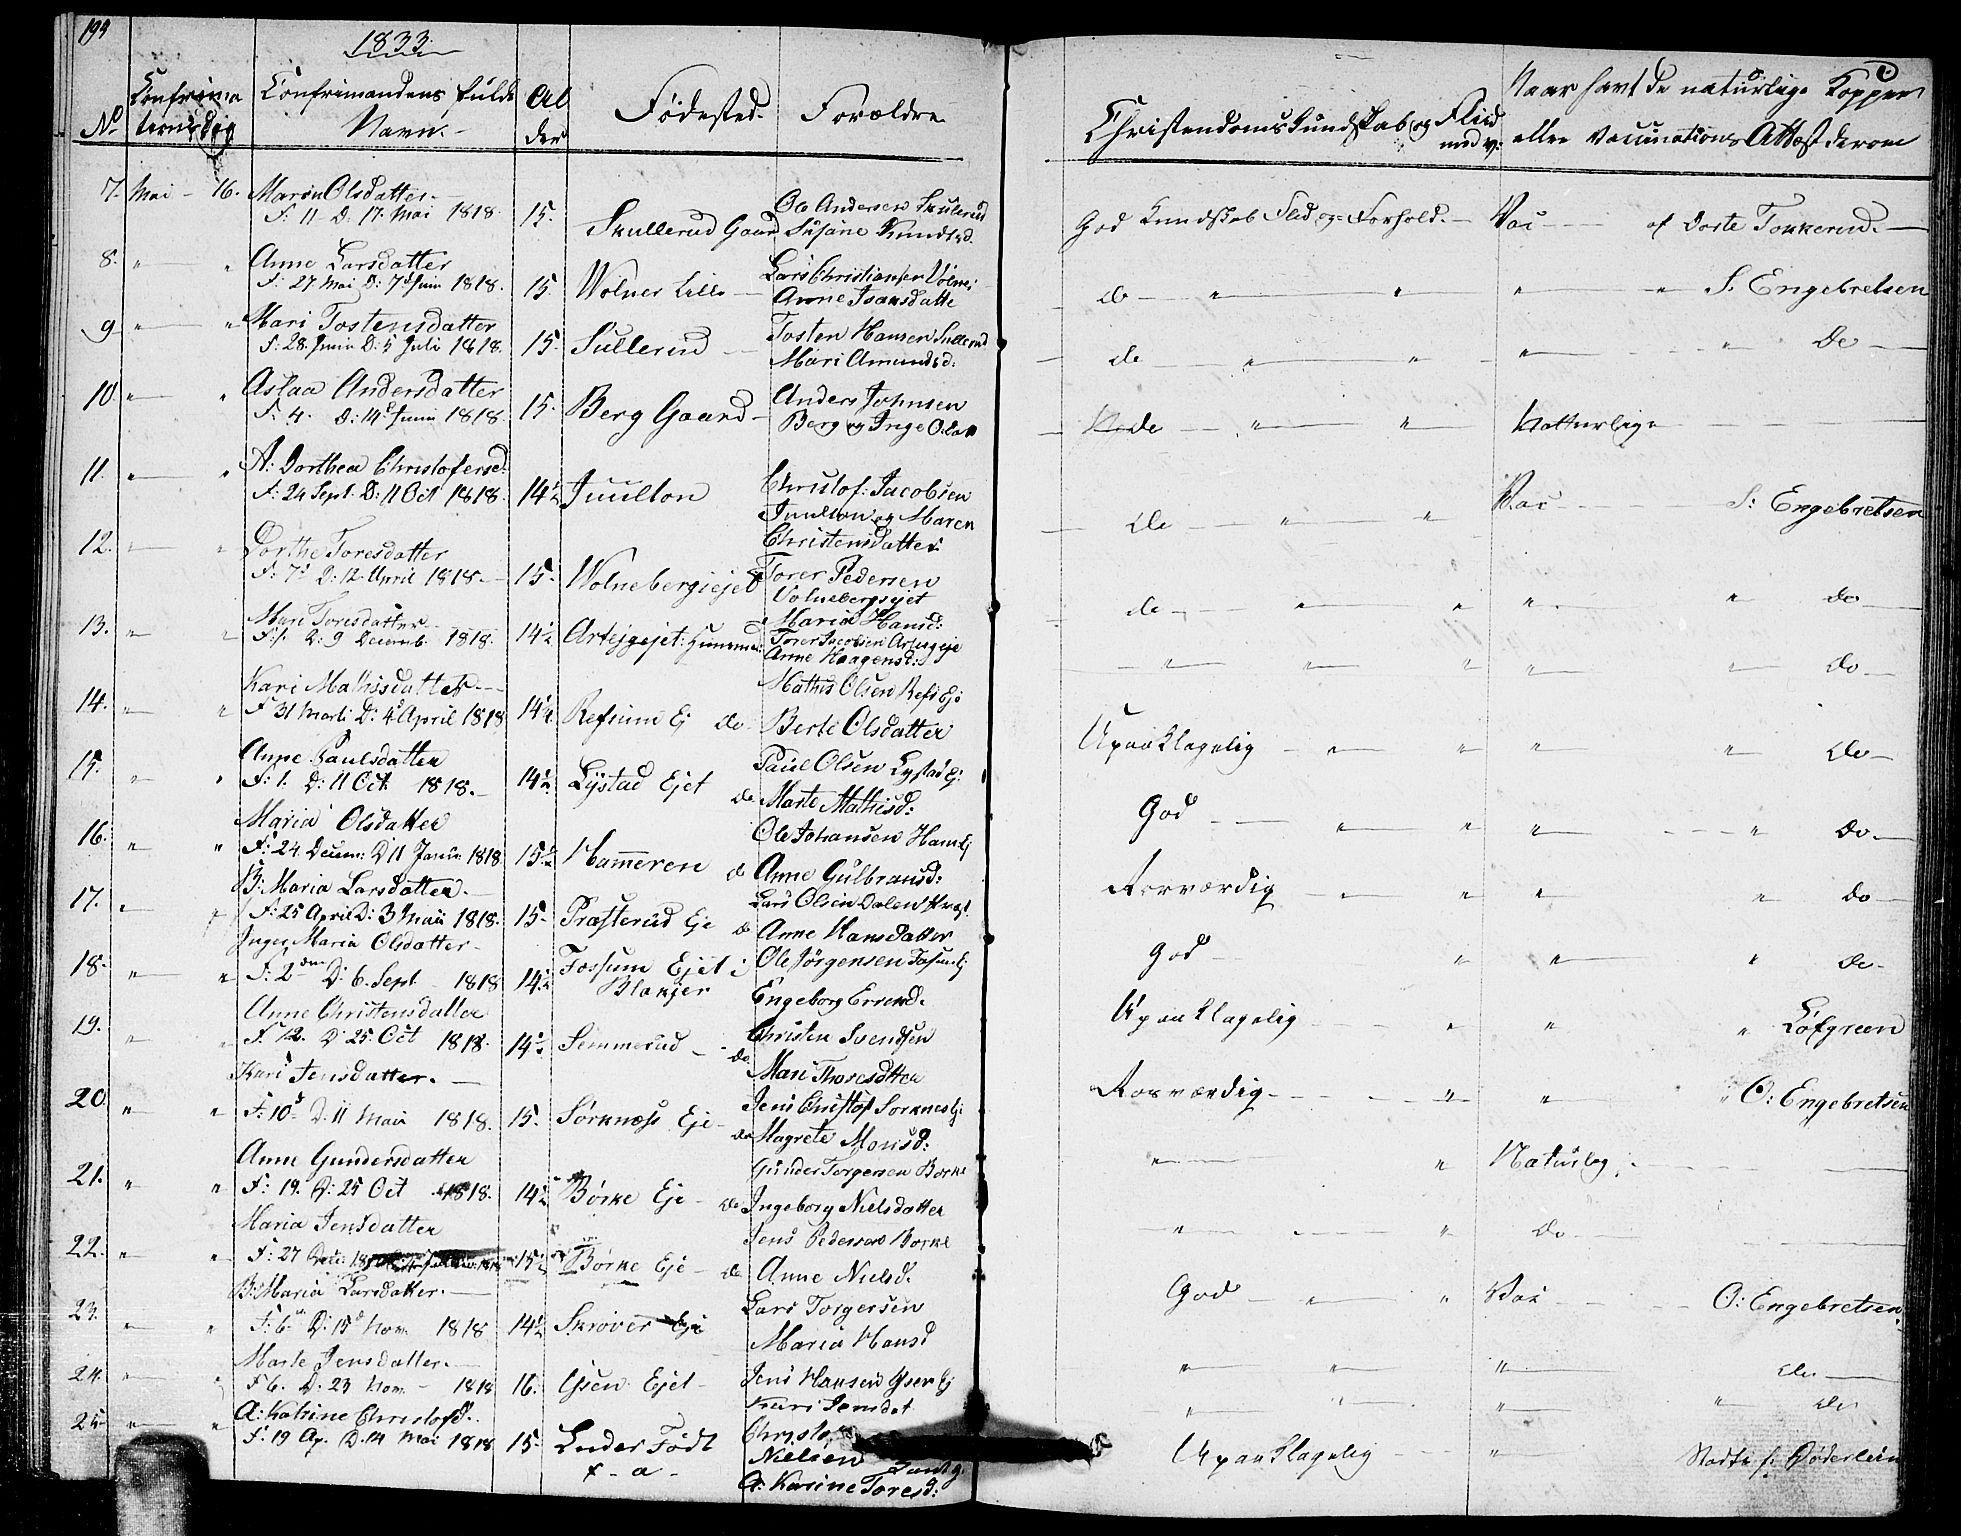 194
1833.
No
Confirma
tions dag
Confirmandens fulde
Navn.
Al
der
Fødested.
Forældre
Christendoms Kundskab og Flid
Naar havt de naturlige Kopper
eller Vaccinations Attest derom
7. Mai - 16. Maren Olsdatter
F: 11 D: 17. Mai 1818. 15. Skullerud Gaard Ole Andersen Skulerud
Susane Knudsd. God Kundskab Flid og Forhold. Vac af Dorte Tonkerud.
8. " " Anne Larsdatter
F: 27 Mai D: 7d Juni 1818. 15. Wolner Lille Lars Christiansen Volner
Anne Isaksdatte do " " " " S. Engebretsen
9 " " Mari Tostensdatter
F: 28. Juni D: 5 Juli 1818. 15. Sullerud Tosten Hansen Sullerud
Mari Amundsd: do " " " " Do
10. " " Aslaa Andersdatter
F. 4. D: 14d Juni 1818. 15. Berg Gaard Anders Johnsen
Berg og Inge Olsd do " " Natturlige
11. " " A: Dorthea Christofersd:
F: 24 Sept. D: 11 Oct 1818. 14½ Juulton Christof: Jacobsen
Juulton og Maren
Christensdatter do " " Vac S: Engebretsen
12. " " Dorthe Toresdatter
F: 7d D: 12. April 1818. 15. Wolnebergiejet Torer Pedersen
Volnebergsejet
Maria Hansd: do " " " " do
13. " " Mari Toresdatter
F: 1. D: 9 Decemb. 1818. 14½ Artejgejet: Torer Jacobsen
Anne Haagensd: " " " " " do
14. " " Kari Mathisdatter
F 31 Marti D: 4d April 1818 14½ Refsum Ej do Mathis Olsen Refs Ej
Berte Olsdatter Upaaklagelig " " " " do
15. " " Anne Paulsdatter
F: 1. D: 11 Oct. 1818. 14½ Lystad Ejet do Paul Olsen Lystad Ej:
Marte Mathisd: God " " " " do
16. " " Maria Olsdatter
F: 24 Decem: D 11 Janu: 1818. 15½ Hammeren do Ole Johansen Ham Ej
Anne Gulbransd: Rosværdig " " " " do
17. " " B: Maria Larsdatter.
F: 25 April D: 3d Mai 1818. 15. Præsterud Eje do Lars Olsen Dalen Præst.
Anne Hansdatter God " " " do
18. " " Inger Maria Olsdatter
F: 2den D: 6. Sept 1818 14½ Fossum Ejet i
Blakjer Ole Jörgensen Fossum Ej
Engeborg Errend. Upaaklagelig " " " Löfgreen
19. " " Anne Christensdatter
F. 12. D: 25. Oct 1818. 14½ Semmerud do Christen Svendsen
Mari Thoresdtter Rosværdig " " " O: Engebretsen
20. " " Kari Jensdatter.
F: 10d D: 11 Mai 1818. 15. Sörknæss Eje do Jens Christof Sorknes Ej:
Magrete Monsd: " " Naturlig
21. " " Anne Gundersdatter
F: 19. D: 25 Oct 1818. 14½ Børke Eje do Gunder Torgersen Borke
Ingeborg Nielsdatter " " do
22. " " Maria Jensdatter
F: 27 15½ Børke Eje do Jens Pedersen Borke
Anne Nielsd. God " " Vac O: Engebretsen.
23. " " B: Maria Larsdatter.
F: 6d D: 15d Nov. 1818 14½ Skrøver Eje Lars Torgersen
Maria Hansd " " " do
24. " " Marte Jensdatter.
F 6. D. 23 Nov. 1818 16. Ysen Ejet Jens Hansen Ysen Ej
Kari Jensdat " " " " do
25 " " A: Katrine Christofd.
F. 19 Ap. D. 14 Mai 1818 15. Lader Födt Christo
Nielsen
A: Karine Toresd: Upaaklagelig " Døderlein